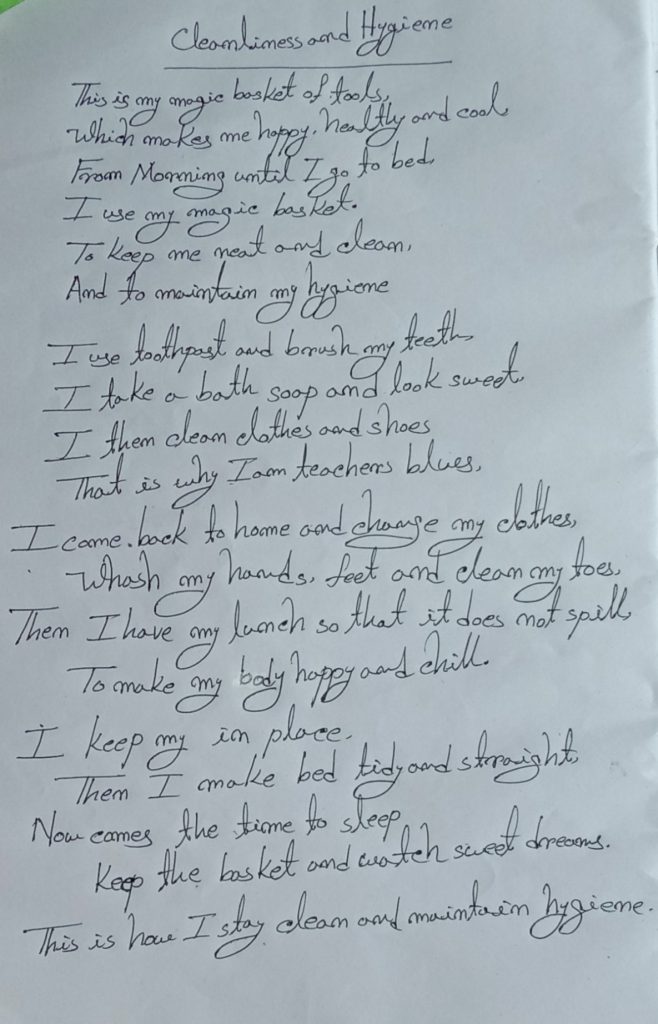 Cleanliness and Hygiene
This is my magic basket of tools,
Which makes me happy, healthy and cool
From Morning until I go to bed
I use my magic basket.
To keep me neat and clean,
And to maintain my hygiene
I use toothpast and brush my teeth
I take a bath soap and look sweet,
I then clean clothes and shoes
That is why I am teachers blues,
I came back to home and change my clothes,
Whash my hands, feet and clean my toes,
Then I have my lunch so that it does not spill,
To make my body happy and chill.
I keep my in place.
Then I make bed tidy and straight,
Now comes the time to sleep
Keep the basket and watch sweet dreams.
This is how I stay clean and maintain hygiene.